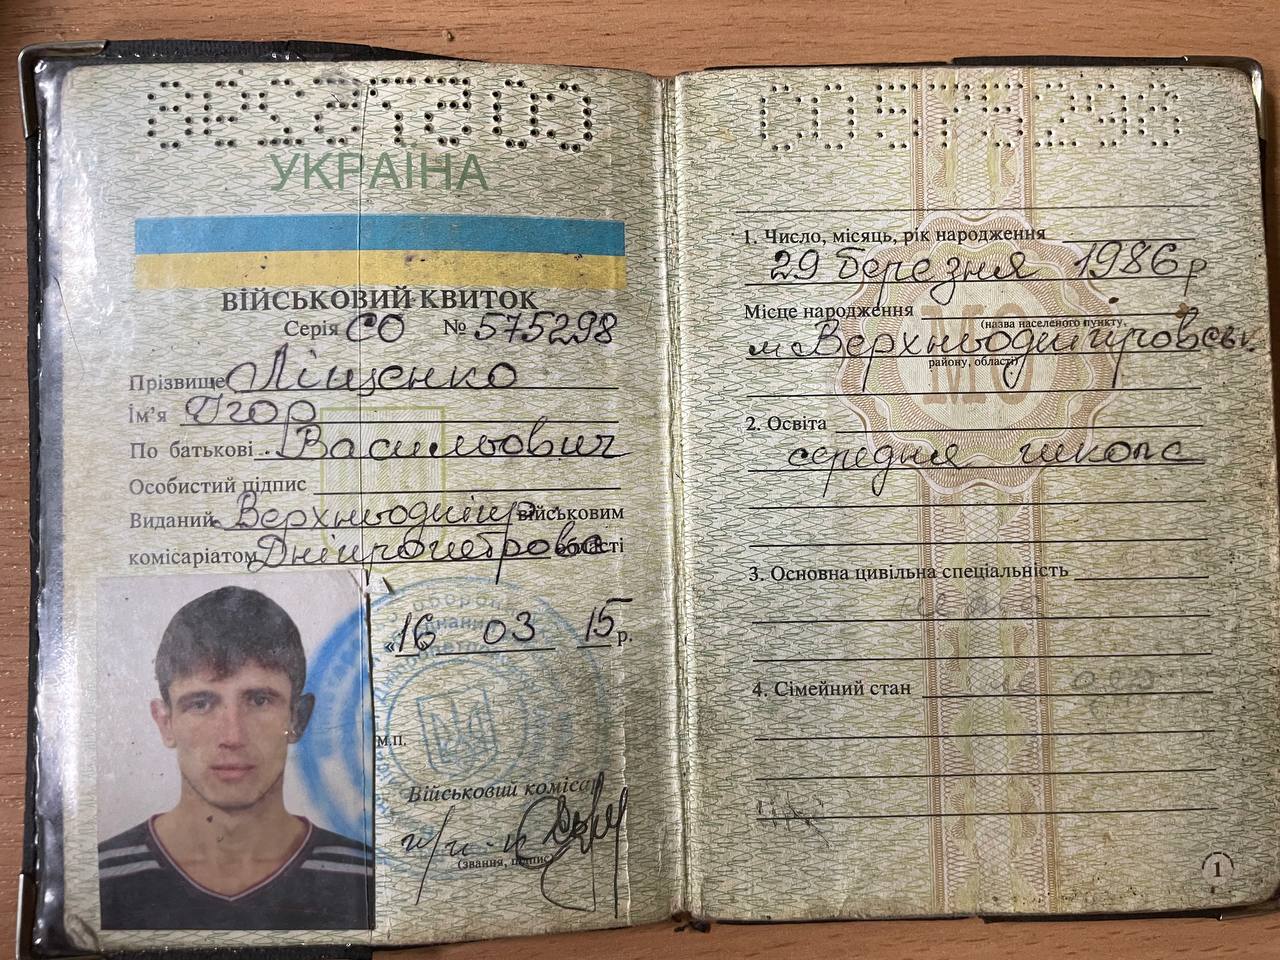 УКРАЇНА
ВІЙСЬКОВИЙ КВИТОК
Серія СО № 575298
Прізвище Ліщенко
Ім’я Ігор
По батькові Васильович
Особистий підпис
Виданий Верхньодніпр військовим
комісаріатом Дніпропетровс області
«16 03 15 р.
М.П.
Військовий комісар
(звання, підпис)
СО 575298
1. Число, місяць, рік народження
29 березня 1986 р
Місце народження
(назва населеного пункту,
м. Верхньодніпровськ
району, області)
МО
2. Освіта
середня школа
3. Основна цивільна спеціальність
4. Сімейний стан
1